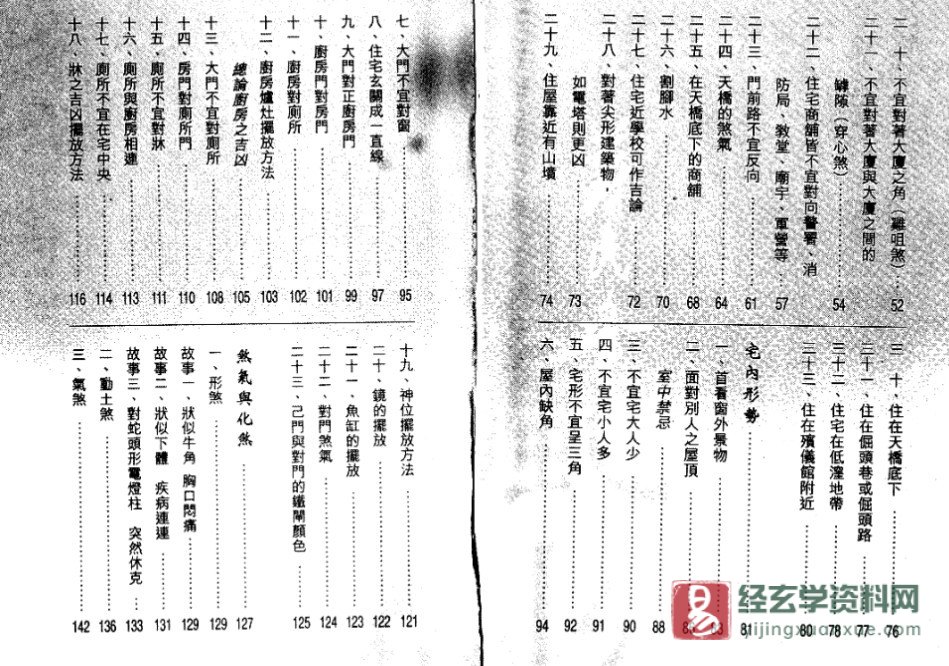 二十、不宜對著大廈之角（雞咀煞）…52
二十一、不宜對著大廈與大廈之間的
罅隙（穿心煞）…54
二十二、住宅商舖皆不宜對向警署、消
防局、教堂、廟宇、軍營等…57
二十三、門前路不宜反向…61
二十四、天橋的煞氣…64
二十五、在天橋底下的商舖…68
二十六、割腳水…70
二十七、住宅近學校可作吉論…72
二十八、對著尖形建築物，
如電塔則更凶…73
二十九、住屋靠近有山墳…74
三十、住在天橋底下…76
三十一、住在倔頭巷或倔頭路…77
三十二、住宅在低窪地帶…78
三十三、住在殯儀館附近…80
宅內形勢…81
一、首看窗外景物…83
二、面對別人之屋頂
室中禁忌…88
三、不宜宅大人少…90
四、不宜宅小人多…91
五、宅形不宜呈三角…92
六、屋內缺角…94
七、大門不宜對窗…95
八、住宅玄關成一直線…97
九、大門對正廚房門…99
十、廚房門對房門…101
十一、廚房對廁所…102
十二、廚房爐灶擺放方法…103
總論廚房之吉凶…105
十三、大門不宜對廁所…108
十四、房門對廁所門…110
十五、廁所不宜對牀…111
十六、廁所與廚房相連…113
十七、廁所不宜在宅中央…114
十八、牀之吉凶擺放方法…116
十九、神位擺放方法…121
二十、鏡的擺放…122
二十一、魚缸的擺放…123
二十二、對門煞氣…124
二十三、己門與對門的鐵閘顏色…125
煞氣與化煞…127
一、形煞…129
故事一、狀似牛角 胸口悶痛…129
故事二、狀似下體 疾病連連…131
故事三、對蛇頭形電燈柱 突然休克…133
二、動土煞…136
三、氣煞…142
易
经玄学资料网
yijingxuanxue.com